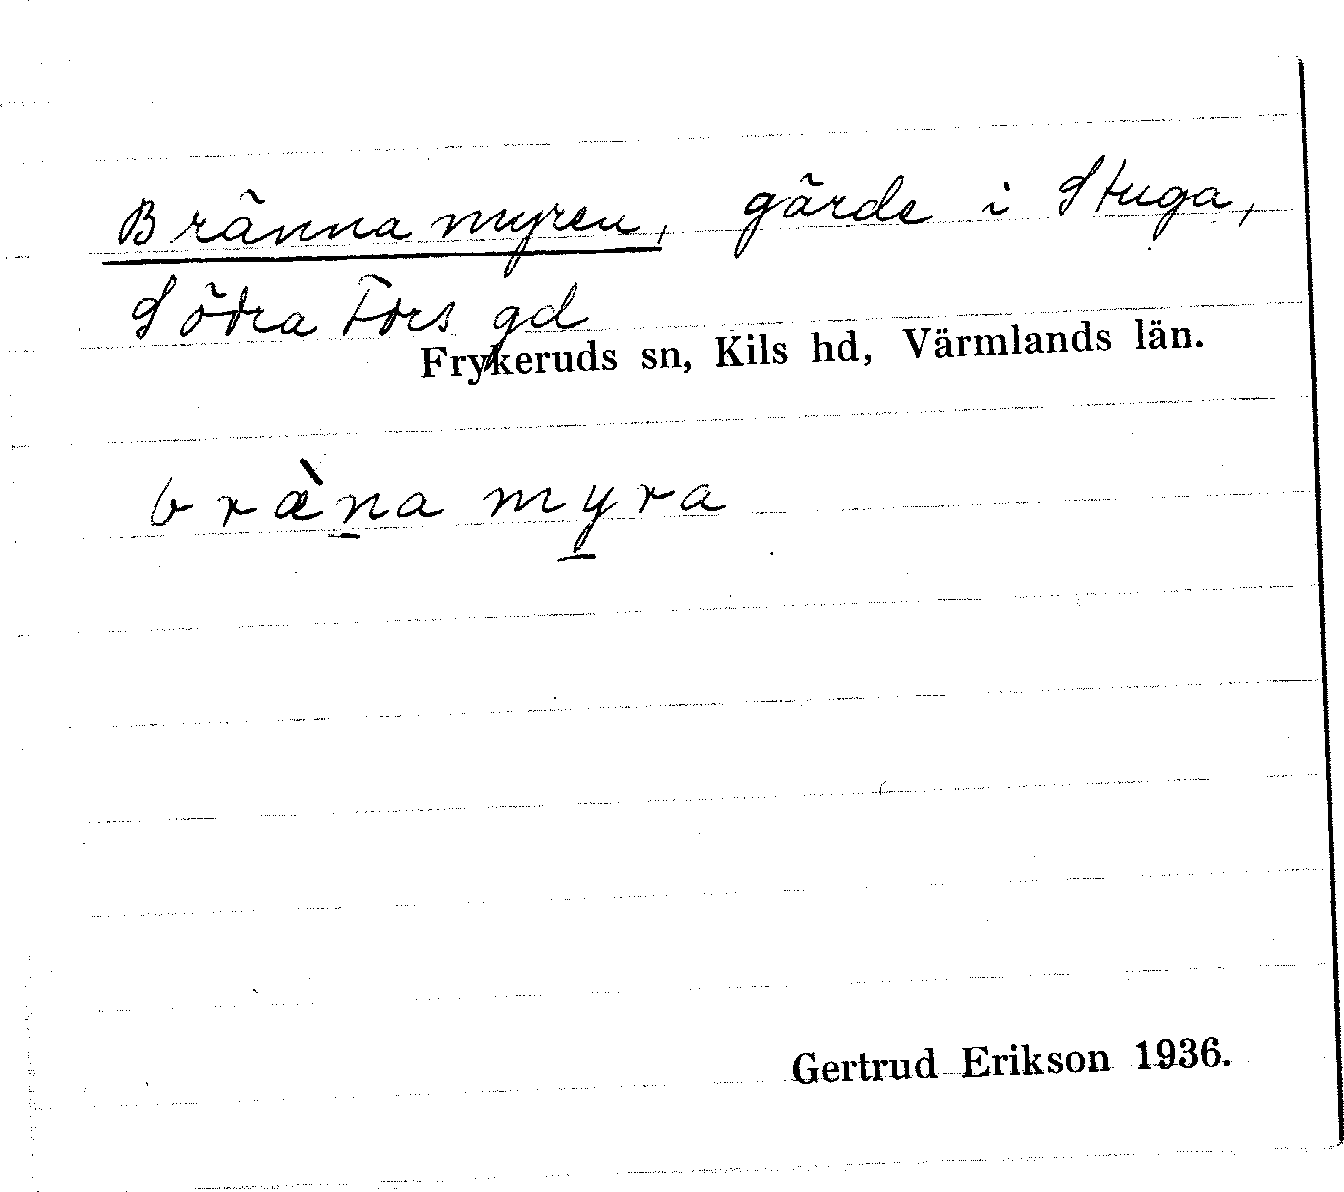 Brännamyren, gärde i Stuga,
Södra Fors gd
Frykeruds sn, Kils hd, Värmlands län.
bræ̀n̲a my̲ra
Gertrud Erikson 1936.